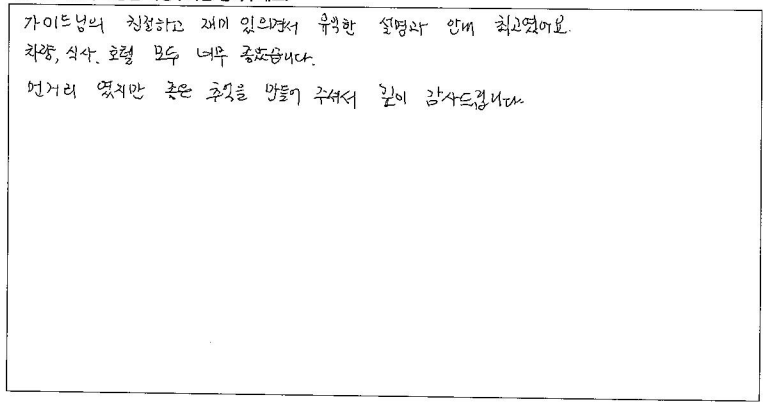 가이드님의 친절하고 재미 있으면서 유익한 설명과 안내 최고였어요.
차량, 식사, 호텔 모두 너무 좋았습니다.
먼거리 였지만 좋은 추억을 만들어 주셔서 깊이 감사드립니다.